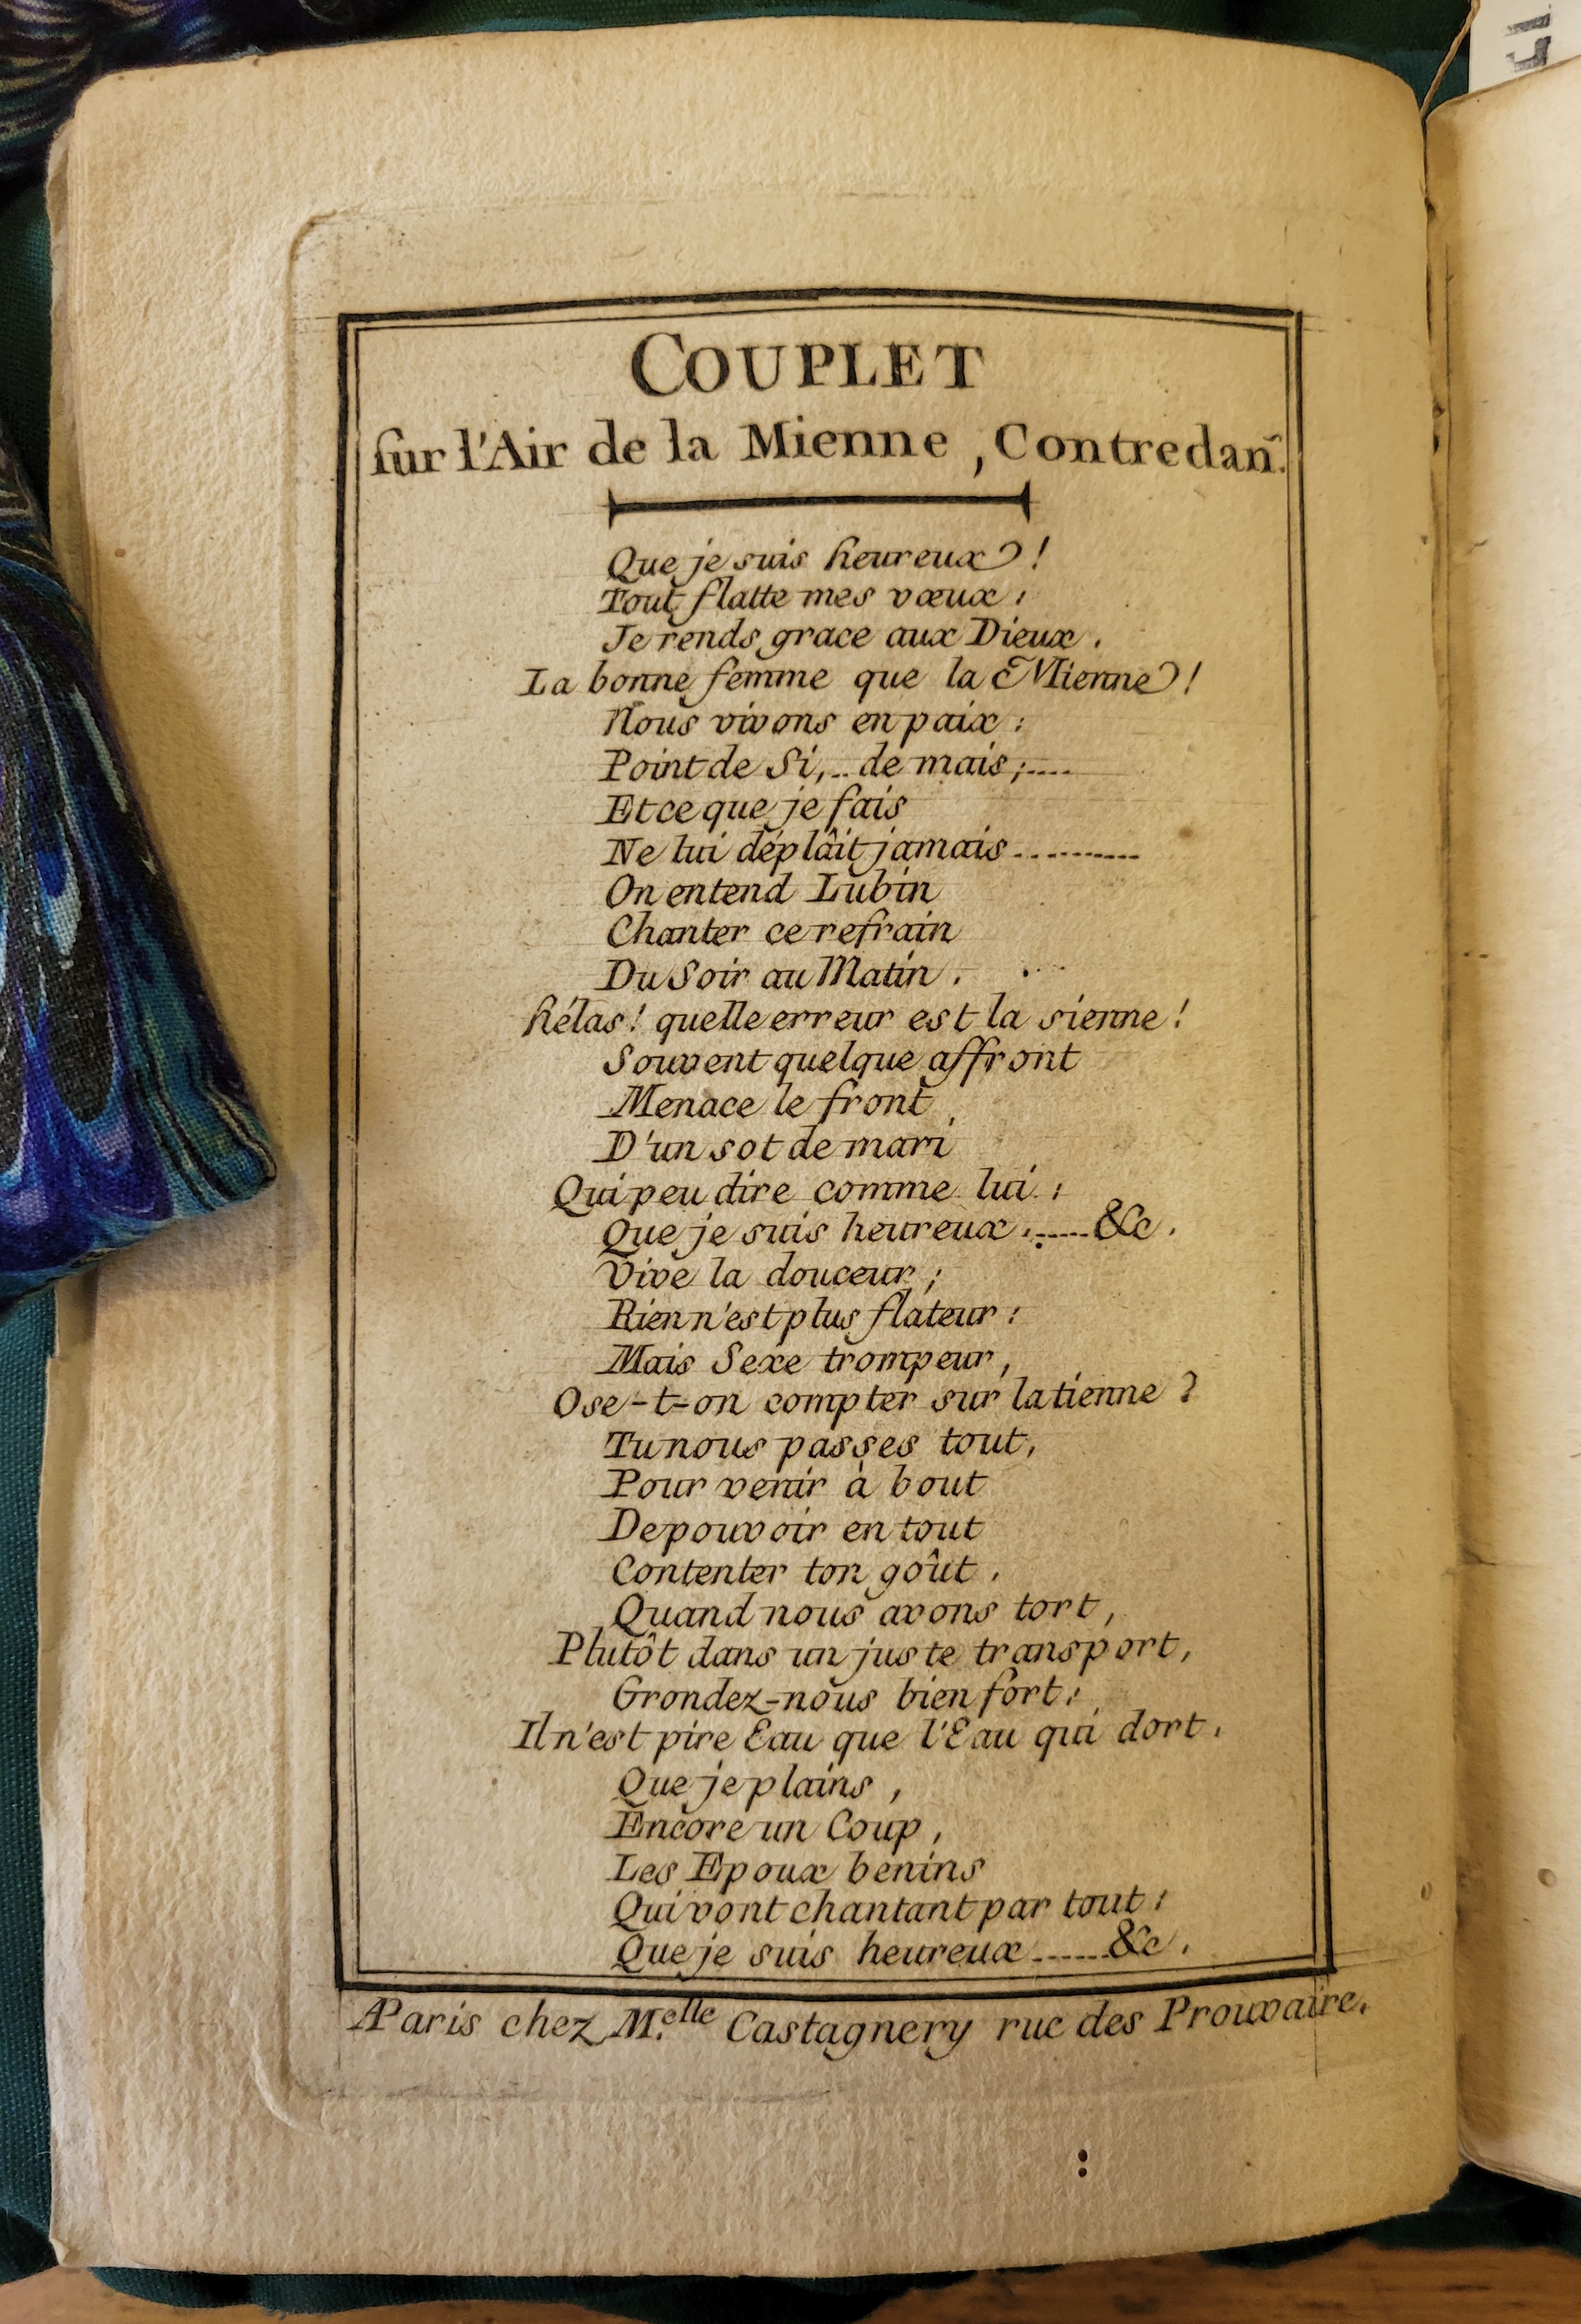 COUPLET
sur l'Air de la Mienne, Contredañ.
Que je suis heureux!
Tout flatte mes vœux:
Je rends grace aux Dieux.
La bonne femme que la Mienne!
Nous vivons en paix:
Point de Si,.. de mais;....
Et ce que je fais
Ne lui déplâit jamais..........
On entend Lubin
Chanter ce refrain
Du Soir au Matin.
hélas! quelle erreur est la sienne!
Souvent quelque affront
Menace le front
D'un sot de mari
Qui peu dire comme lui:
Que je suis heureux......&c.
Vive la douceur;
Rien n'est plus flateur:
Mais Sexe trompeur,
Ose-t-on compter sur la tienne?
Tu nous passes tout,
Pour venir à bout
De pouvoir en tout
Contenter ton goût.
Quand nous avons tort,
Plutôt dans un juste transport,
Grondez-nous bien fort:
Il n'est pire Eau que l'Eau qui dort.
Que je plains,
Encore un Coup,
Les Epoux benins
Qui vont chantant par tout:
Que je suis heureux......&c.
A Paris chez M.elle Castagnery rue des Prouvaire.